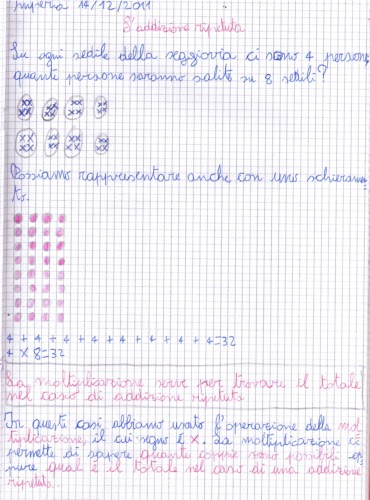 Imperia 14/12/2011
L'addizione ripetuta
Su ogni sedile della seggiovia ci sono 4 persone,
quante persone saranno salite su 8 sedili?
Possiamo rappresentare anche con uno schieramen=
to.
4 + 4 + 4 + 4 + 4 + 4 + 4 + 4 = 32
4 x 8 = 32
La moltiplicazione serve per trovare il totale
nel caso di addizione ripetuta
In questi casi abbiamo usato l'operazione della mol
tiplicazione, il cui segno è x. La moltiplicazione ci
permette di sapere quante coppie sono possibili op=
pure qual è il totale nel caso di una addizione
ripetuta.